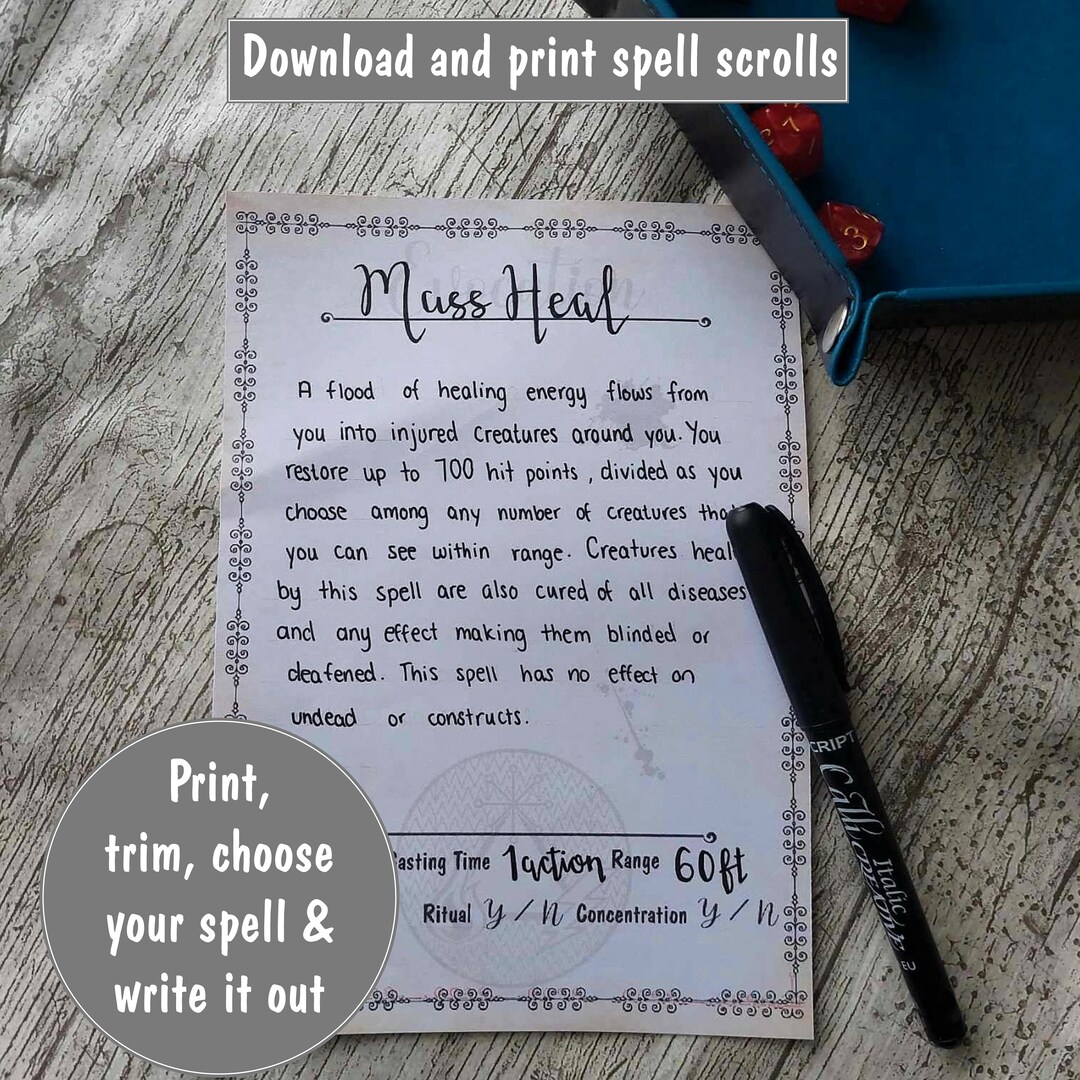 Download and print spell scrolls
Evocation
Mass Heal
A flood of healing energy flows from
you into injured creatures around you. You
restore up to 700 hit points, divided as you
choose among any number of creatures tha
you can see within range. Creatures heal
by this spell are also cured of all diseases
and any effect making them blinded or
deafened. This spell has no effect on
undead or constructs.
asting Time 1 action Range 60ft
Ritual Y / N Concentration Y / N
Print,
trim, choose
your spell &
write it out
CRIPT
Italic
EU